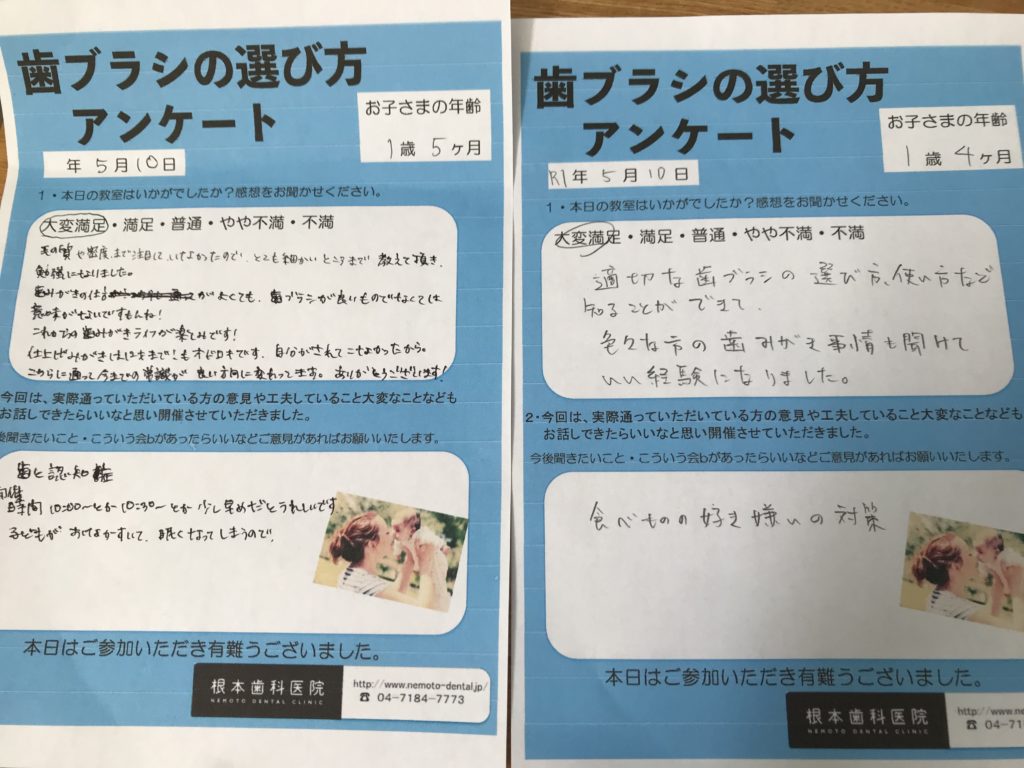 歯ブラシの選び方
アンケート
お子さまの年齢
1歳5ヶ月
年5月10日
1・本日の教室はいかがでしたか？感想をお聞かせください。
大変満足・満足・普通・やや不満・不満
毛の質や密度まで注目していなかったので、とても細かいところまで教えて頂き、
勉強になりました。
歯みがきの仕方がよくても、歯ブラシが良いものでなくては
意味がないですもんね！
これからの歯みがきライフが楽しみです！
仕上げみがきは12才まで！もオドロキです。自分がされてこなかったから。
こちらに通って今までの常識が良い方向に変わってます。ありがとうございます！
今回は、実際通っていただいている方の意見や工夫していること大変なことなども
お話しできたらいいなと思い開催させていただきました。
後聞きたいこと・こういう会bがあったらいいなどご意見があればお願いいたします。
歯と認知症
開催
時間10:00〜とか10:30〜とか少し早めだとうれしいです
子どもがおなかすいて、眠くなってしまうので、
本日はご参加いただき有難うございました。
根本歯科医院
NEMOTO DENTAL CLINIC
http://www.nemoto-dental.jp/
☎ 04-7184-7773
歯ブラシの選び方
アンケート
お子さまの年齢
1歳4ヶ月
R1年5月10日
1・本日の教室はいかがでしたか？感想をお聞かせください。
大変満足・満足・普通・やや不満・不満
適切な歯ブラシの選び方、使い方など
知ることができて、
色々な方の歯みがき事情も聞けて
いい経験になりました。
2・今回は、実際通っていただいている方の意見や工夫していること大変なことなども
お話しできたらいいなと思い開催させていただきました。
今後聞きたいこと・こういう会bがあったらいいなどご意見があればお願いいたします。
食べものの好き嫌いの対策
本日はご参加いただき有難うございました。
根本歯科医院
NEMOTO DENTAL CLINIC
http://www.ne
☎ 04-71